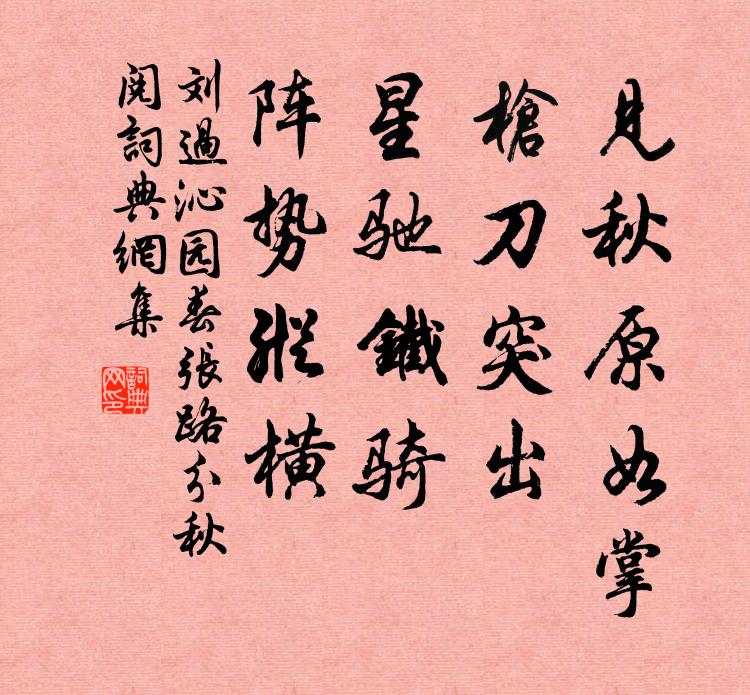 见秋原如掌
槍刀突出
星驰鐵骑
阵势縱橫
刘過沁园春張路分秋
阅詞典網集
詞典
网印